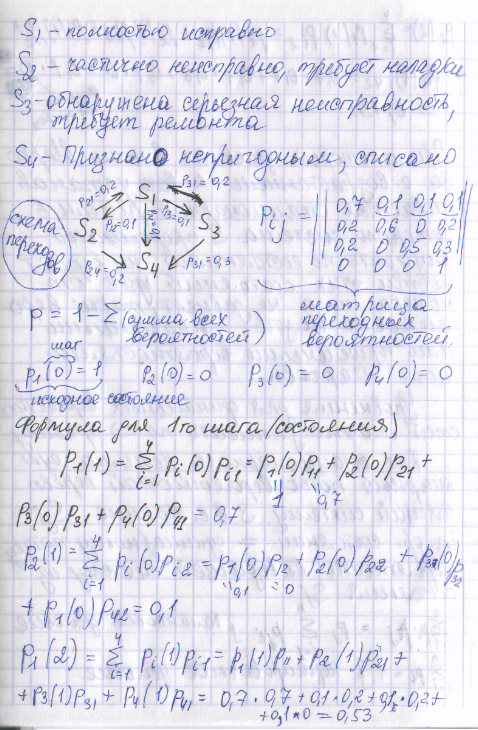 S₁ - полностью исправно
S₂ - частично неисправно, требует наладки
S₃ - обнаружена серьезная неисправность,
требует ремонта
S₄ - Признано непригодным, списано
схема переходов
S₁ S₂ S₃ S₄
P₂₁=0,2 P₁₂=0,1 P₃₁=0,2 P₁₃=0,1 P₂₄=0,2 P₃₁=0,3
Pij = || 0,7 0,1 0,1 0,1
0,2 0,6 0 0,2
0,2 0 0,5 0,3
0 0 0 1 ||
матрица
переходных
вероятностей.
P = 1 - Σ (сумма всех
вероятностей)
шаг
P₁(0) = 1 P₂(0) = 0 P₃(0) = 0 P₄(0) = 0
исходное состояние
Формула для 1го шага (состояния)
P₁(1) = Σ⁴ᵢ₌₁ Pi(0) Pi1 = P₁(0)P₁₁ + P₂(0)P₂₁ +
1 0,7
P₃(0) P₃₁ + P₄(0) P₄₁ = 0,7
P₂(1) = Σ⁴ᵢ₌₁ Pi(0)Pi2 = P₁(0)P₁₂ + P₂(0)P₂₂ + P₃(0)P₃₂
0,1 = 0
+ P₁(0) P₄₂ = 0,1
P₁(2) = Σ⁴ᵢ₌₁ Pi(1)Pi1 = P₁(1)P₁₁ + P₂(1)P₂₁ +
+ P₃(1)P₃₁ + P₄(1)P₄₁ = 0,7·0,7 + 0,1·0,2 + 0,1·0,2 +
+ 0,1*0 = 0,53